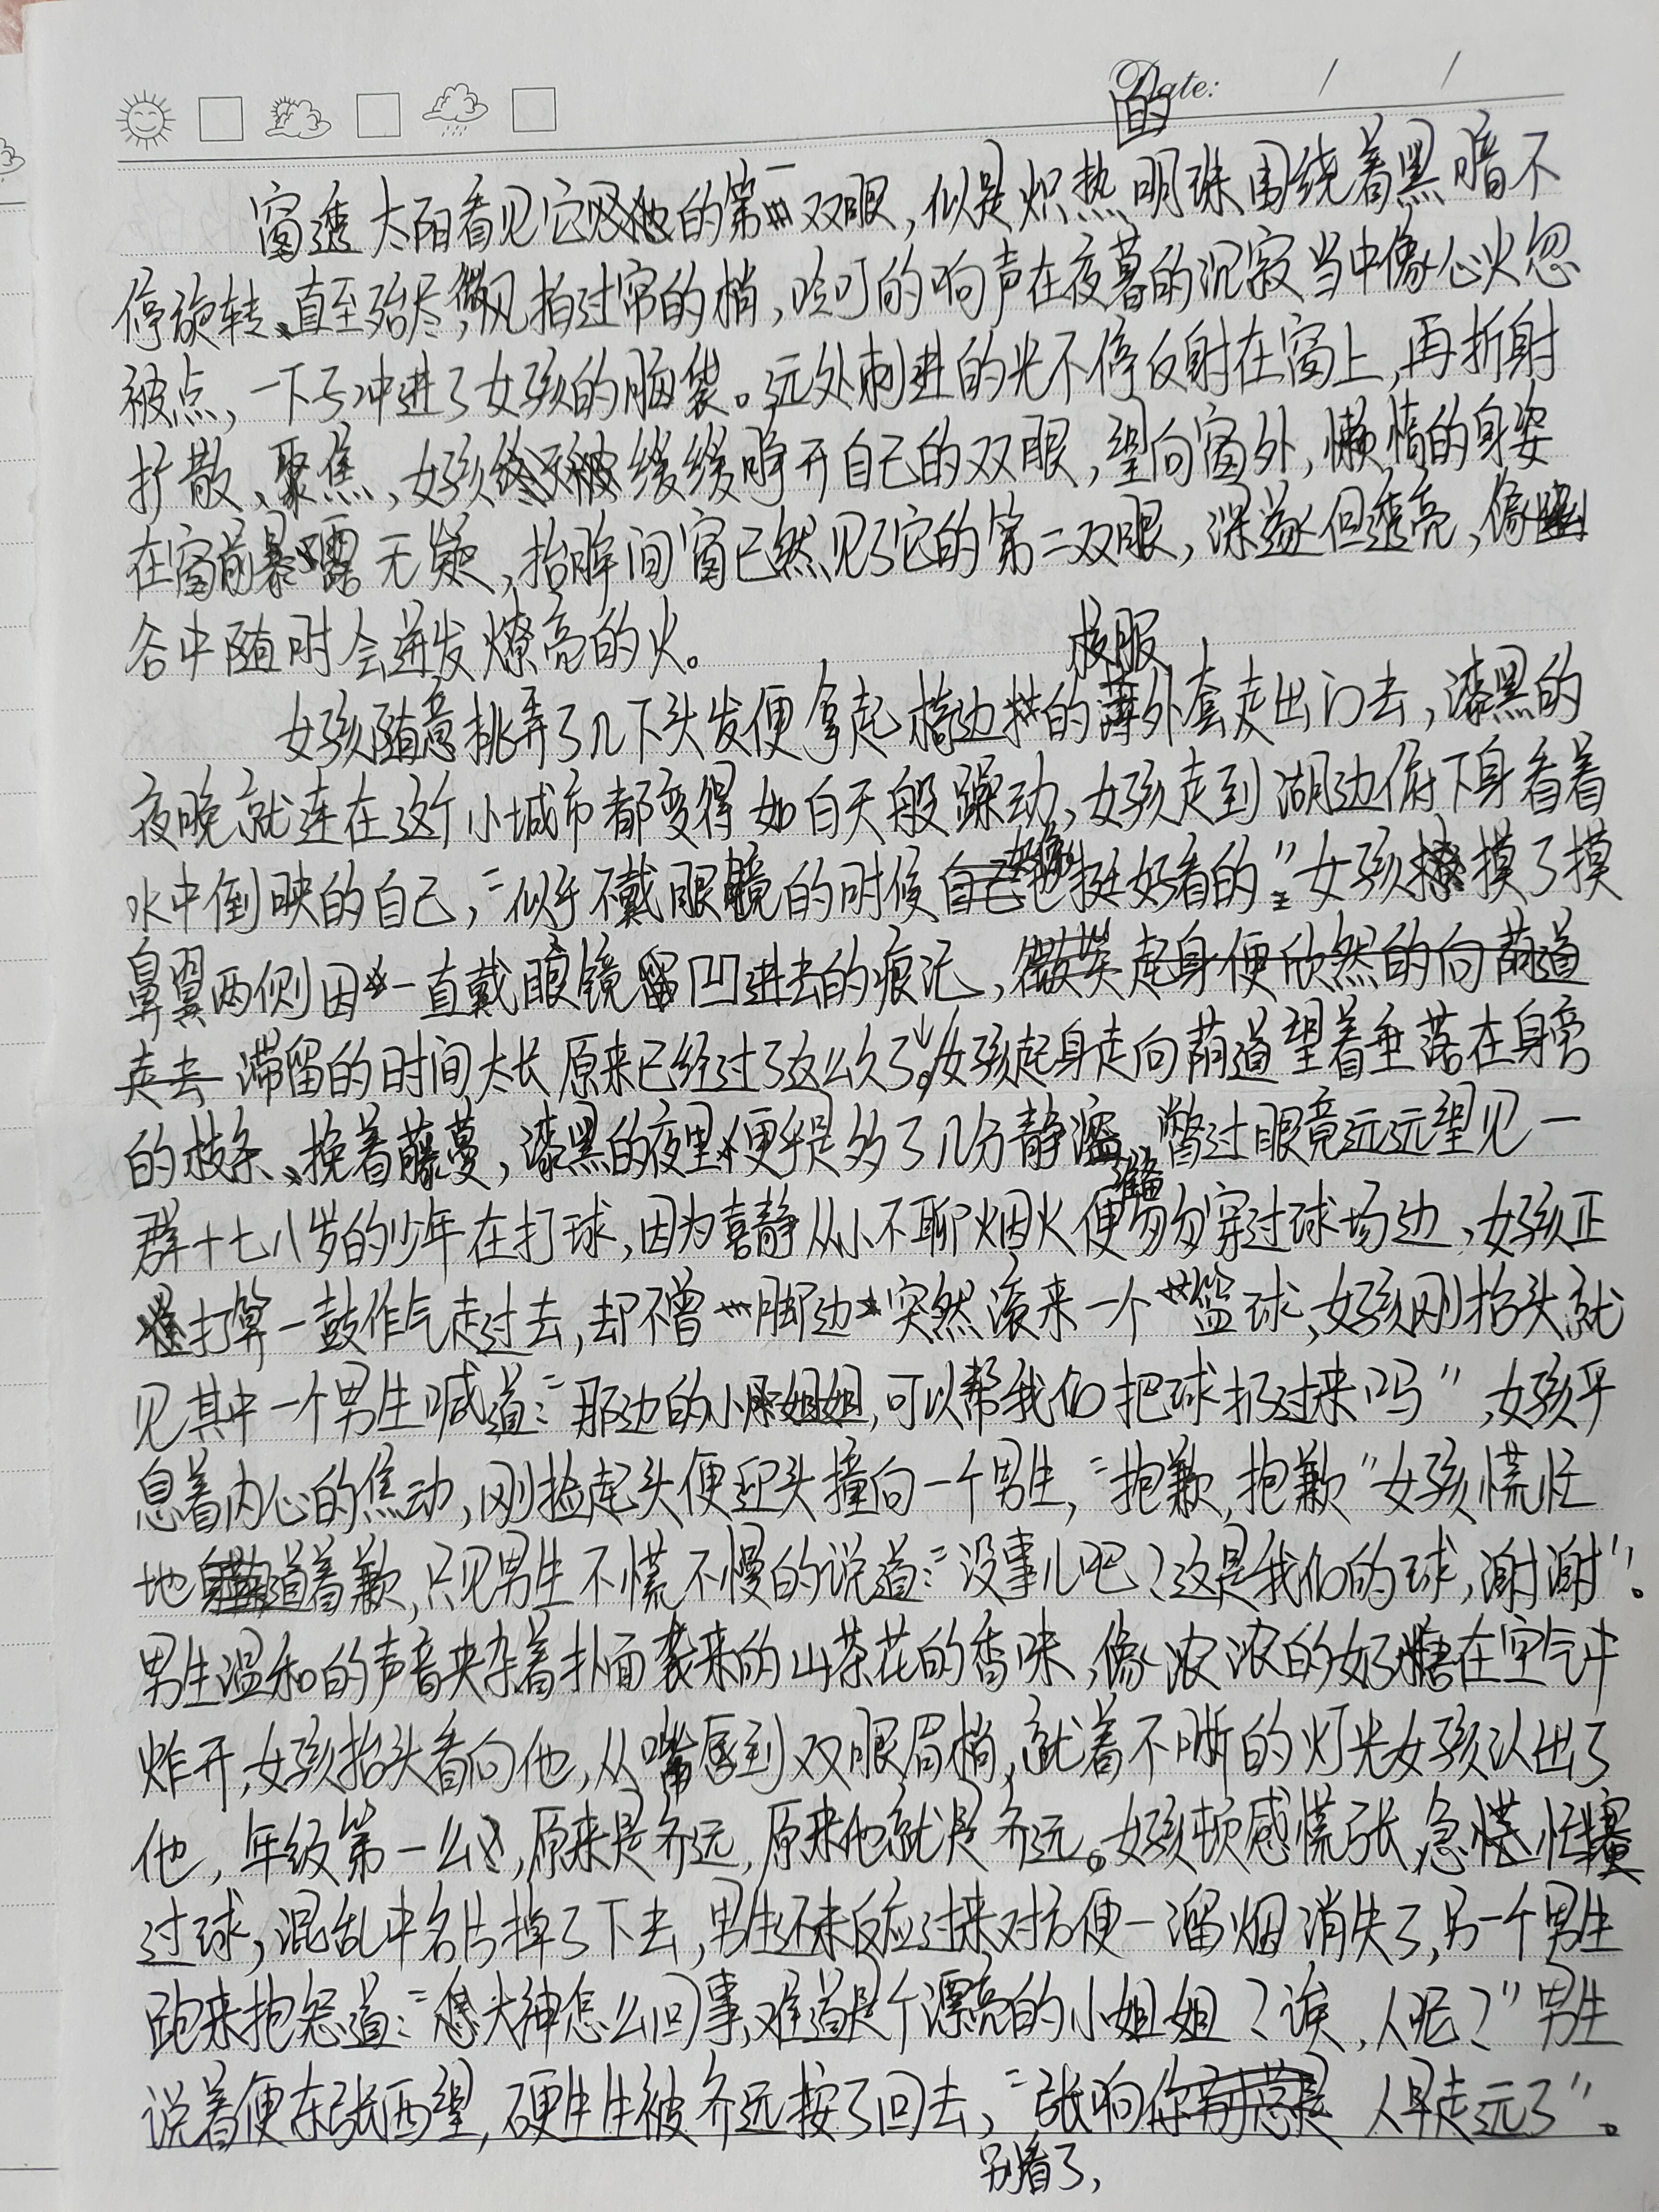 Date: / /
窗透太阳看见它的第一双眼，似是炽热的明珠围绕着黑暗不
停旋转、直至殆尽，微风拍过帘的梢，吟叮的响声在夜暮的沉寂当中像心火忽
被点，一下子冲进了女孩的脑袋。远处刺进的光不停反射在窗上，再折射
扩散、聚焦，女孩缓缓睁开自己的双眼，望向窗外，懒惰的身姿
在窗前暴露无疑，抬眸间窗已然见了它的第二双眼，深邃但透亮，像幽
谷中随时会迸发燎亮的火。
女孩随意挑弄了几下头发便拿起椅边的校服外套走出门去，漆黑的
夜晚就连在这个小城市都变得如白天般躁动、女孩走到湖边俯下身看着
水中倒映的自己，“似乎不戴眼镜的时候好像挺好看的”女孩摸了摸
鼻翼两侧因一直戴眼镜留凹进去的痕记，
滞留的时间太长原来已经过了这么久了。女孩起身走向荫道望着垂落在身旁
的枝条、挽着藤蔓，漆黑的夜里便于是多了几分静谧、瞥过眼竟远远望见一
群十七八岁的少年在打球，因为喜静从小不聊烟火便准备匆匆穿过球场边、女孩正
打算一鼓作气走过去，却不曾脚边突然滚来一个篮球、女孩刚抬头就
见其中一个男生喊道：“那边的小姐姐，可以帮我们把球扔过来吗”，女孩平
息着内心的焦动，刚捡起头便迎头撞向一个男生，“抱歉，抱歉”女孩慌忙
地道着歉，只见男生不慌不慢的说道：“没事儿吧？这是我们的球，谢谢”。
男生温和的声音夹杂着扑面袭来的山茶花的香味，像浓浓的奶糖在空气中
炸开，女孩抬头看向他，从嘴唇到双眼眉梢，就着不晰的灯光女孩认出了
他，年级第一么，原来是齐远，原来他就是齐远。女孩顿感慌张，急慌忙
过球，混乱中名片掉了下去，男生还未反应过来对方便一溜烟消失了，另一个男生
跑来抱怨道：“大神怎么回事，难道是个漂亮的小姐姐？诶，人呢？”男生
说着便东张西望，硬生生被齐远按了回去，“张响别看了，人早走远了”。